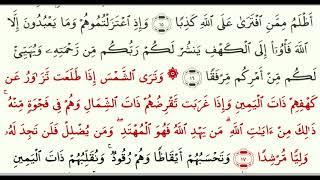 أَظْلَمُ مِمَّنِ ٱفْتَرَىٰ عَلَى ٱللَّهِ كَذِبًا ١٥ وَإِذِ ٱعْتَزَلْتُمُوهُمْ وَمَا يَعْبُدُونَ إِلَّا
ٱللَّهَ فَأْوُۥٓا۟ إِلَى ٱلْكَهْفِ يَنشُرْ لَكُمْ رَبُّكُم مِّن رَّحْمَتِهِۦ وَيُهَيِّئْ
لَكُم مِّنْ أَمْرِكُم مِّرْفَقًا ١٦ وَتَرَى ٱلشَّمْسَ إِذَا طَلَعَت تَّزَٰوَرُ عَن
كَهْفِهِمْ ذَاتَ ٱلْيَمِينِ وَإِذَا غَرَبَت تَّقْرِضُهُمْ ذَاتَ ٱلشِّمَالِ وَهُمْ فِى فَجْوَةٍ مِّنْهُ ۚ
ذَٰلِكَ مِنْ ءَايَٰتِ ٱللَّهِ ۗ مَن يَهْدِ ٱللَّهُ فَهُوَ ٱلْمُهْتَدِ ۖ وَمَن يُضْلِلْ فَلَن تَجِدَ لَهُۥ
وَلِيًّا مُّرْشِدًا ١٧ وَتَحْسَبُهُمْ أَيْقَاظًا وَهُمْ رُقُودٌ ۚ وَنُقَلِّبُهُمْ ذَاتَ ٱلْيَمِينِ